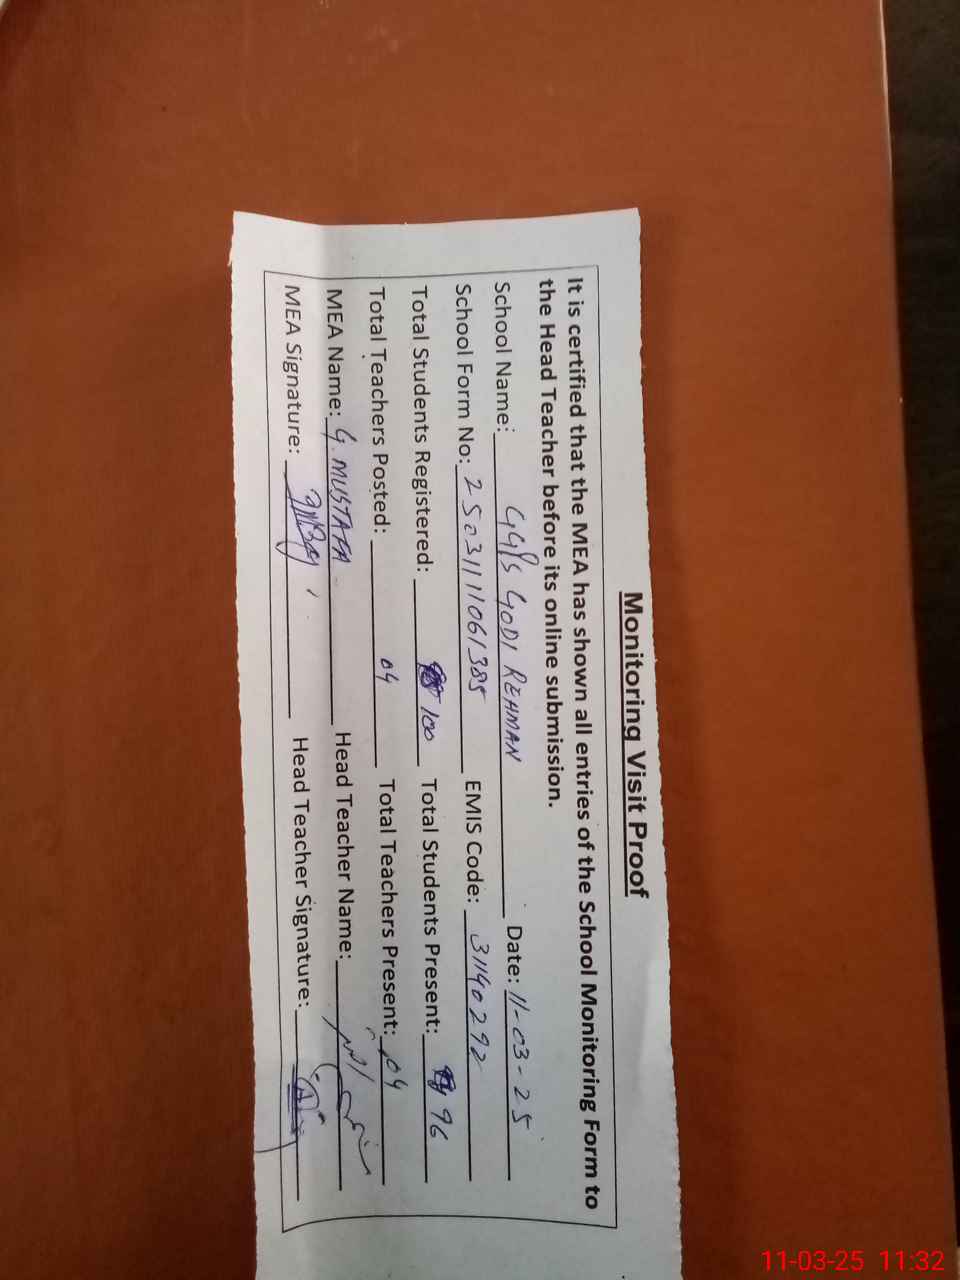 Monitoring Visit Proof
It is certified that the MEA has shown all entries of the School Monitoring Form to
the Head Teacher before its online submission.
School Name: GGPS GODI REHMAN Date: 11-03-25
School Form No: 2503111061385 EMIS Code: 31140292
Total Students Registered: 100 Total Students Present: 96
Total Teachers Posted: 04 Total Teachers Present: 04
MEA Name: G. MUSTAFA Head Teacher Name:
MEA Signature: Head Teacher Signature:
11-03-25 11:32